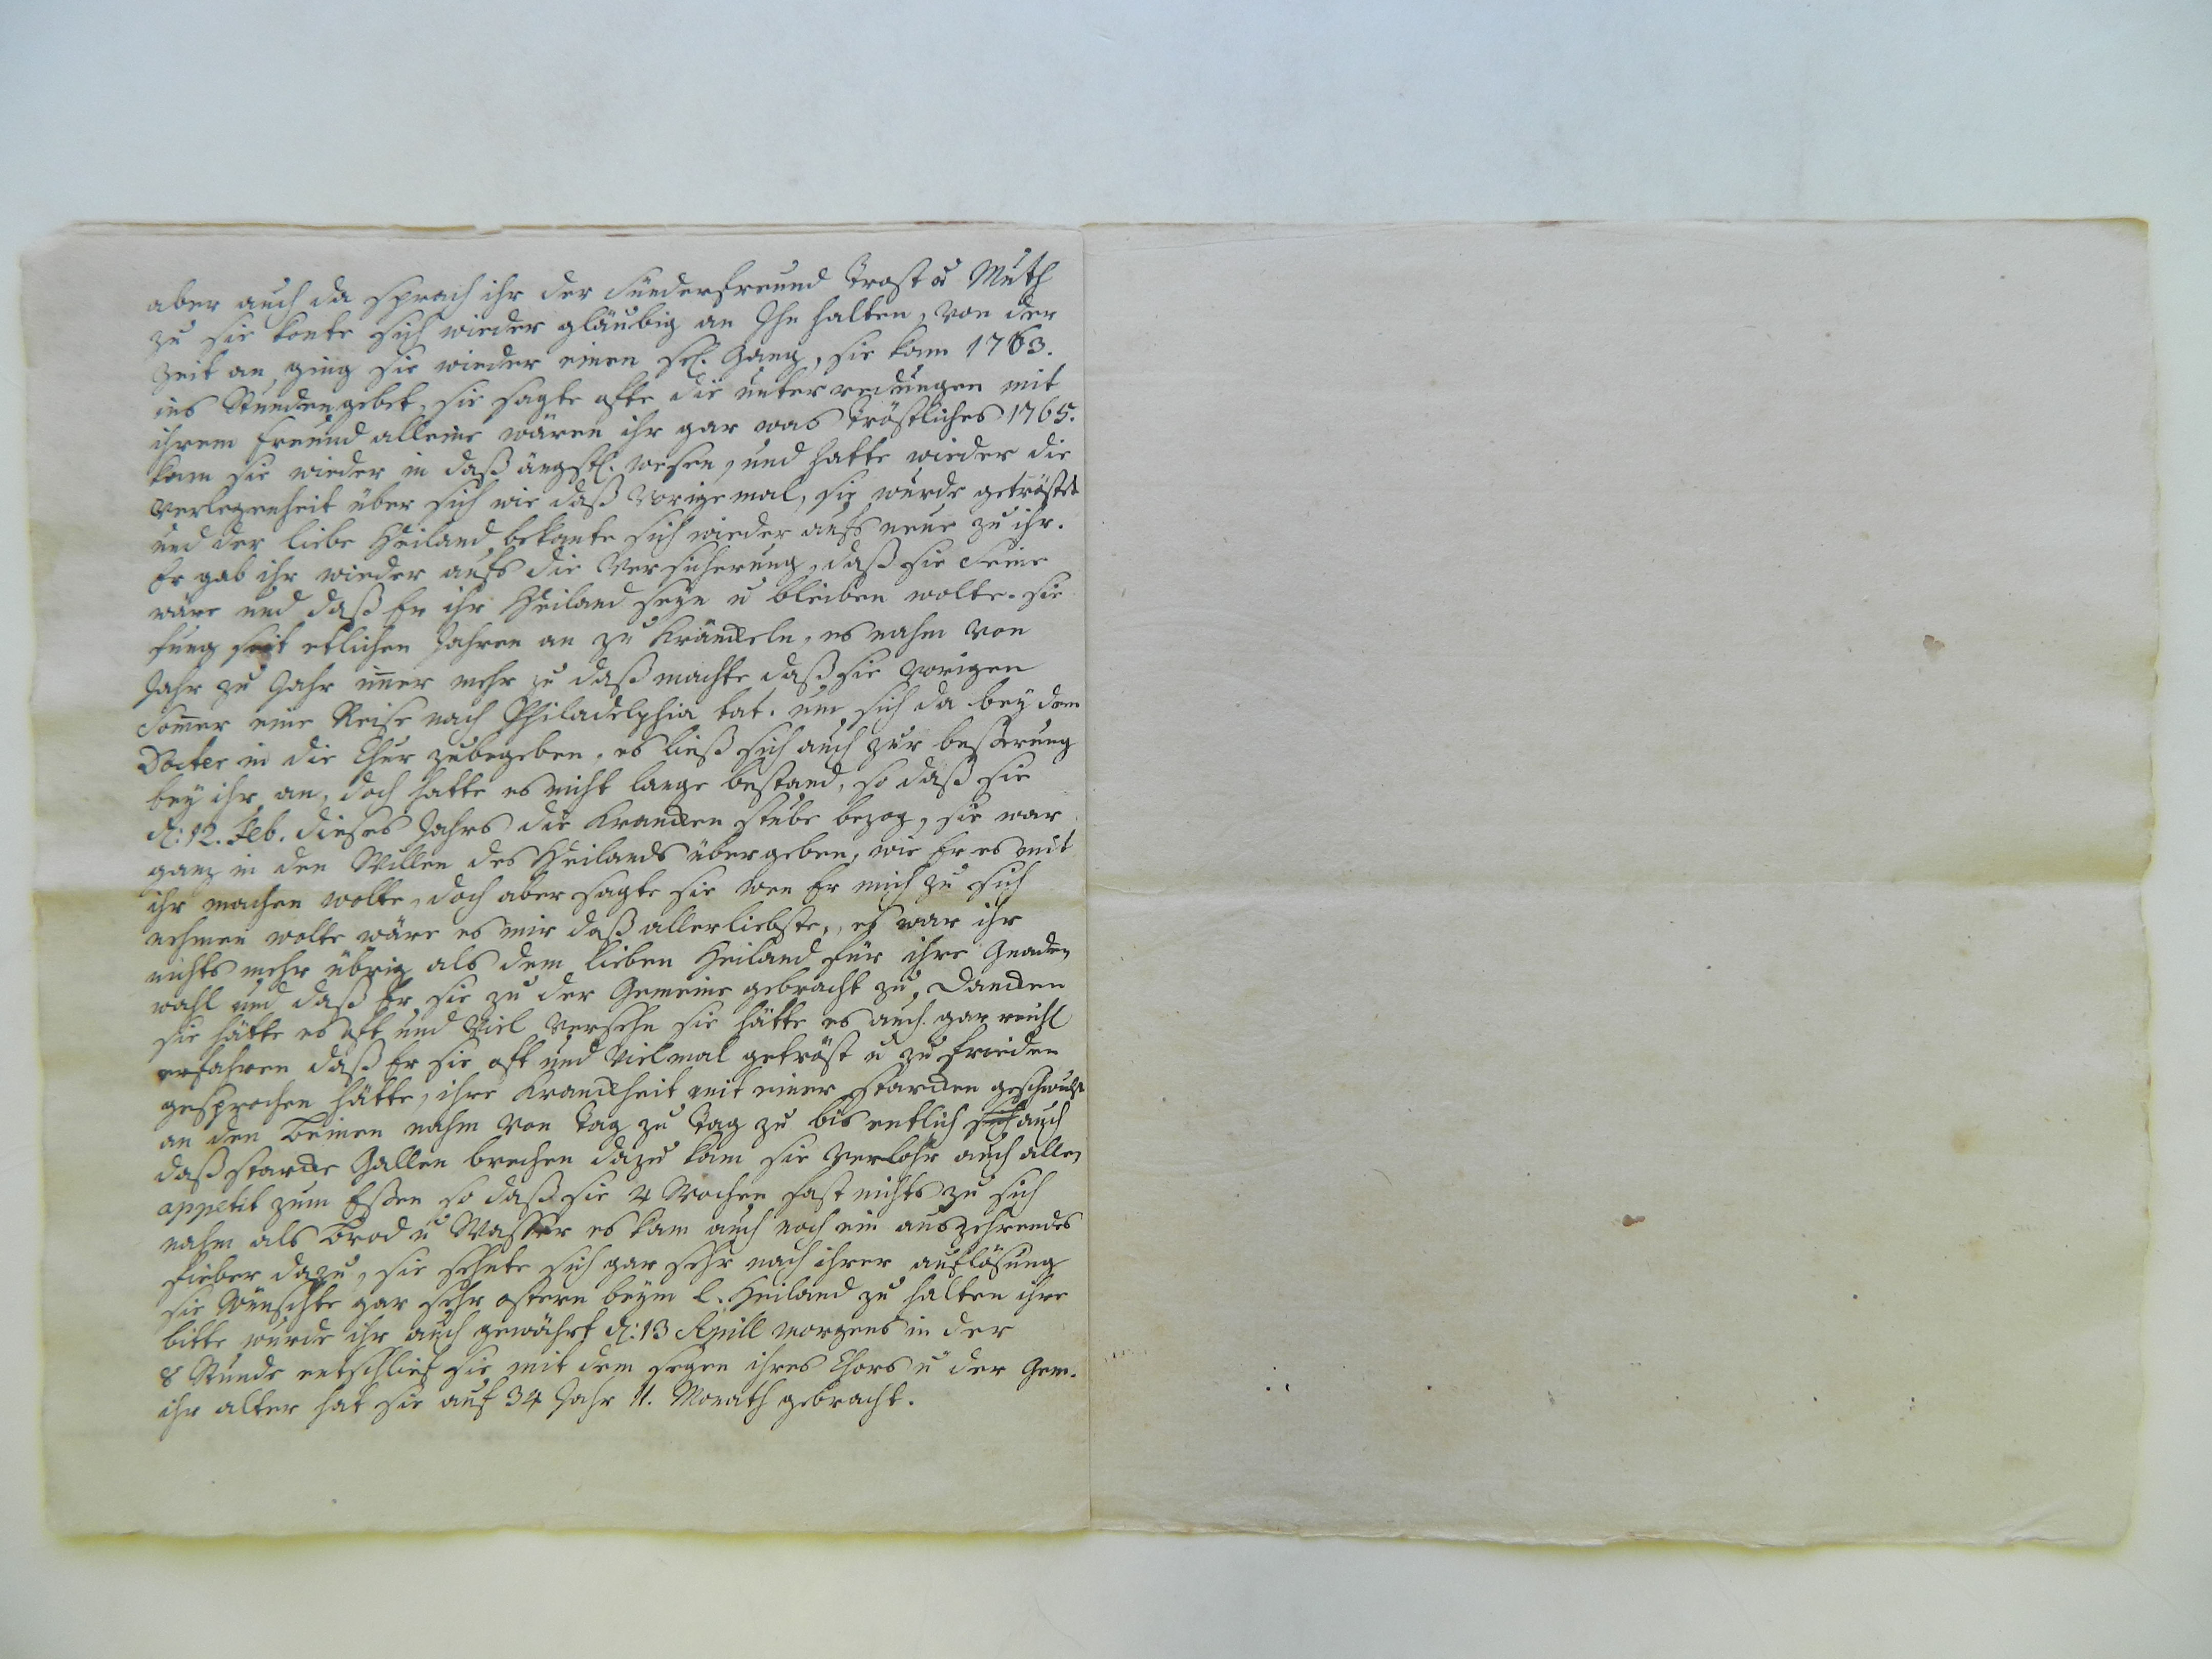 aber auch da sprach ihr der Sünderfreund Trost u Muth
zu sie konte sich wieder gläubig an Ihn halten, von der
Zeit an, ging sie wieder einen sel. Gang, sie kam 1763.
ins Stundengebet, sie sagte ofte die unterredungen mit
ihrem Freund alleine wären ihr gar was tröstliches 1765.
kam sie wieder in daß ängstl. wesen, und hatte wieder die
verlegenheit über sich wie daß vorige mal, sie wurde getröstet
und der liebe Heiland bekante sich wieder aufs neue zu ihr.
Er gab ihr wieder aufs die versicherung, daß sie Seine
wäre und daß Er ihr Heiland seyn u bleiben wolte. sie
fing seit etlichen Jahren an zu Kränckeln, es nahm von
Jahr zu Jahr im̄er mehr zu daß machte daß sie vorigen
Som̄er eine Reise nach Philadelphia tat. um sich da bey dem
Docter in die Chur zubegeben, es ließ sich auch zur besserung
bey ihr an, doch hatte es nicht lange bestand, so daß sie
d: 12. Feb. dieses Jahrs die Krancken stube bezog, sie war
ganz in den Willen des Heilands übergeben, wie Er es mit
ihr machen wolte, doch aber sagte sie wen Er mich zu sich
nehmen wolte wäre es mir daß allerliebste, es war ihr
nichts mehr übrig als dem lieben Heiland für ihre Gnaden
wahl und daß Er sie zu der Gemeine gebracht zu Dancken
sie hätte es oft und viel versehn sie hätte es auch gar reichl
erfahren daß Er sie oft und vielmal getröst u zu frieden
gesprochen hätte, ihre Kranckheit mit einer starcken geschwulst
an den Beinen nahm von Tag zu Tag zu bis entlich auch
daß starcke Gallen brechen dazu kam sie verlohr auch allen
appetit zum Eßen so daß sie 4 Wochen fast nichts zu sich
nahm als Brod u Wasser es kam auch noch ein auszehrendes
fieber dazu, sie sehnte sich gar sehr nach ihrer auflösung
sie wünschte gar sehr ostern beym l. Heiland zu halten ihre
bitte wurde ihr auch gewährt d: 13 Aprill morgens in der
8 Stunde entschlief sie mit dem segen ihres Chors u der Gem.
ihr alter hat sie auf 34 Jahr 11. Monath gebracht.